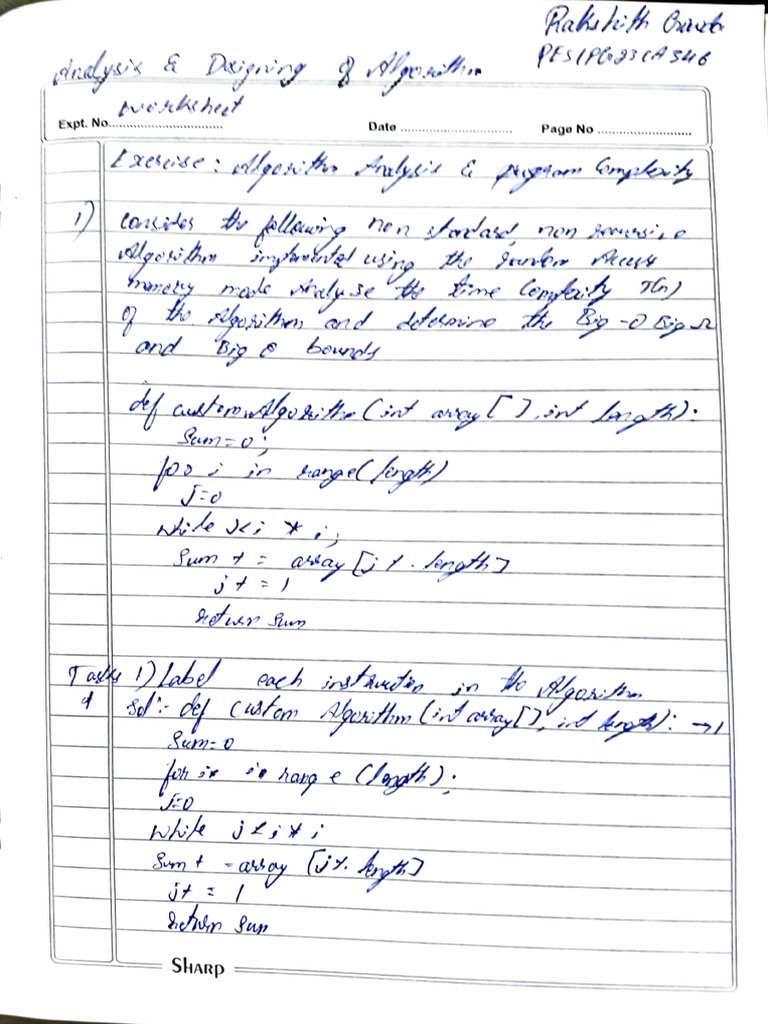 Rakshith Gowda
PES1PG23CA346
Analysis & Designing of Algorithm
Worksheet
Expt. No............................... Date ................................ Page No ...........................
Exercise : Algorithm Analysis & program Complexity
1) consider the following non standard, non recursive
Algorithm implemented using the random Access
memory mode Analyse the time Complexity T(n)
of the Algorithm and determine the Big-O Big Ω
and Big Θ bounds
def custom Algorithm (int array [ ], int length):
Sum=0;
for i in range( length)
J=0
while j<i * i;
Sum + = array [j % . length]
j + = 1
return sum
Tasks 1) Label each instruction in the Algorithm
Sol :- def Custom Algorithm (int array[], int length): →1
Sum=0
for in range (length):
J=0
while j < i * i
Sum + = array [j %. length]
j + = 1
return sum
SHARP